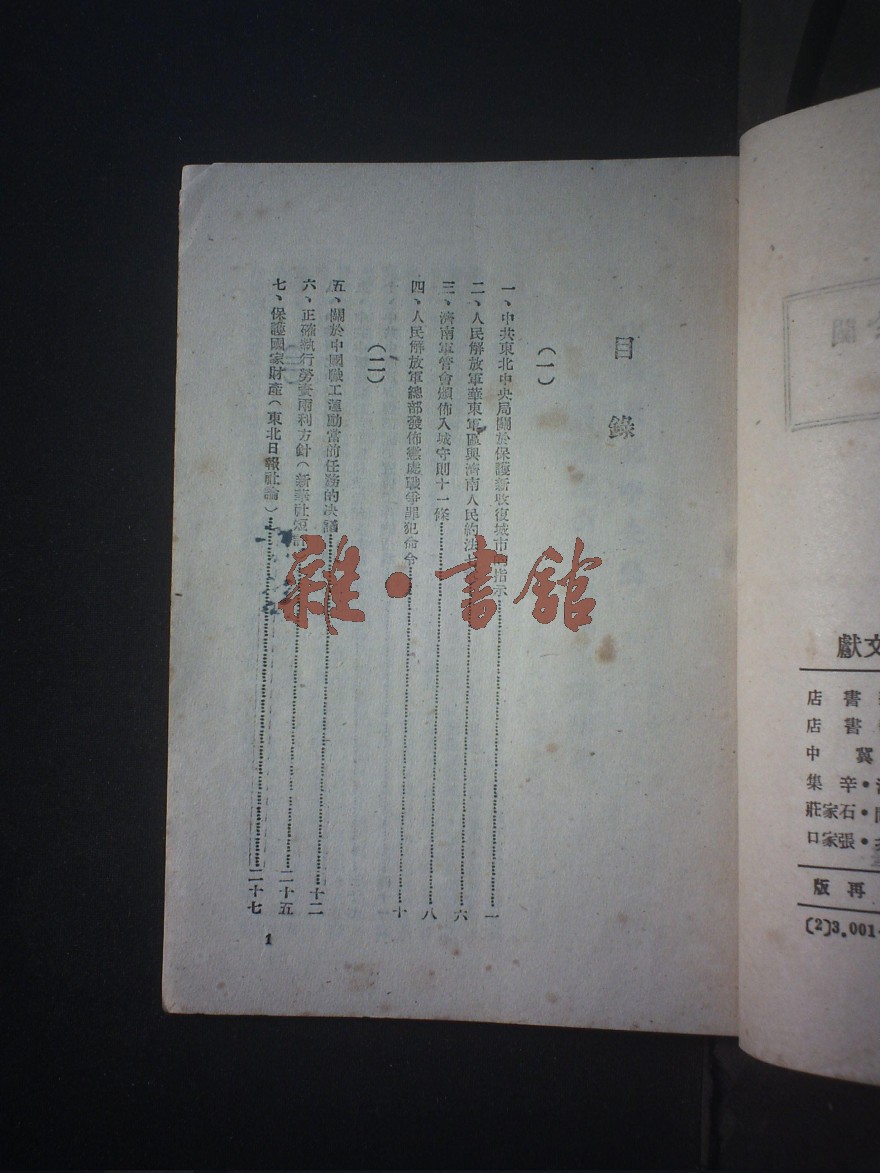 目錄
（一）
一、中共東北中央局關於保護新收復城市的指示……一
二、人民解放軍華東軍區與濟南人民約法七……六
三、濟南軍管會頒佈入城守則十一條……八
四、人民解放軍總部發佈懲處戰爭罪犯命令……十
（二）
五、關於中國職工運動當前任務的決議……十二
六、正確執行勞資兩利方針（新華社短評……二十五
七、保護國家財產（東北日報社論）……二十七
1
雜·書館
獻文
店書
店書
中冀
集辛·
莊家石·
口家張·
版再
(2)3.001-